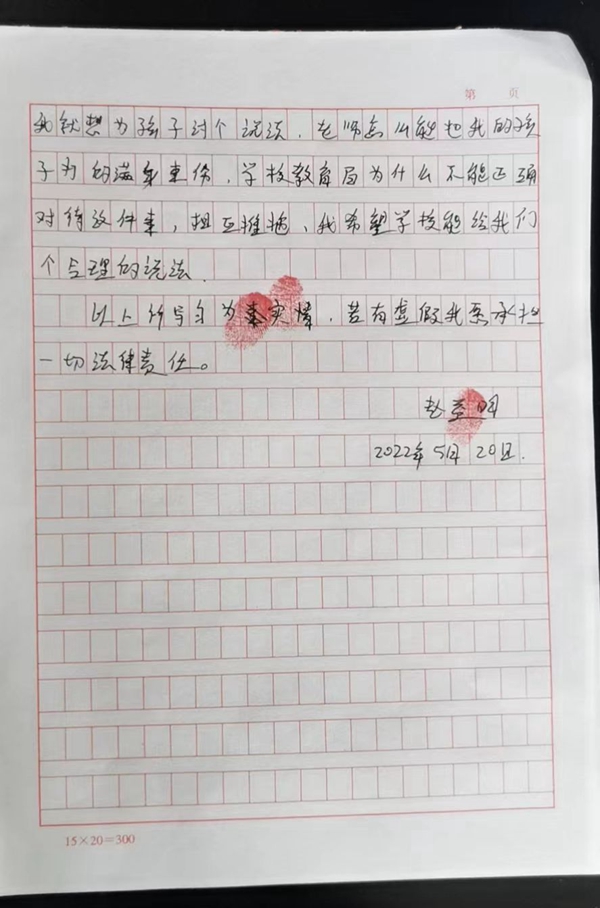 第 页
我就想为孩子讨个说法，老师怎么能把我的孩
子打的满身重伤，学校教育局为什么不能正确
对待这件事，相互推搪，我希望学校能给我们
个合理的说法.
以上所写自为事实情，若有虚假我愿承担
一切法律责任。
赵 明
2022年5月20日.
15×20=300